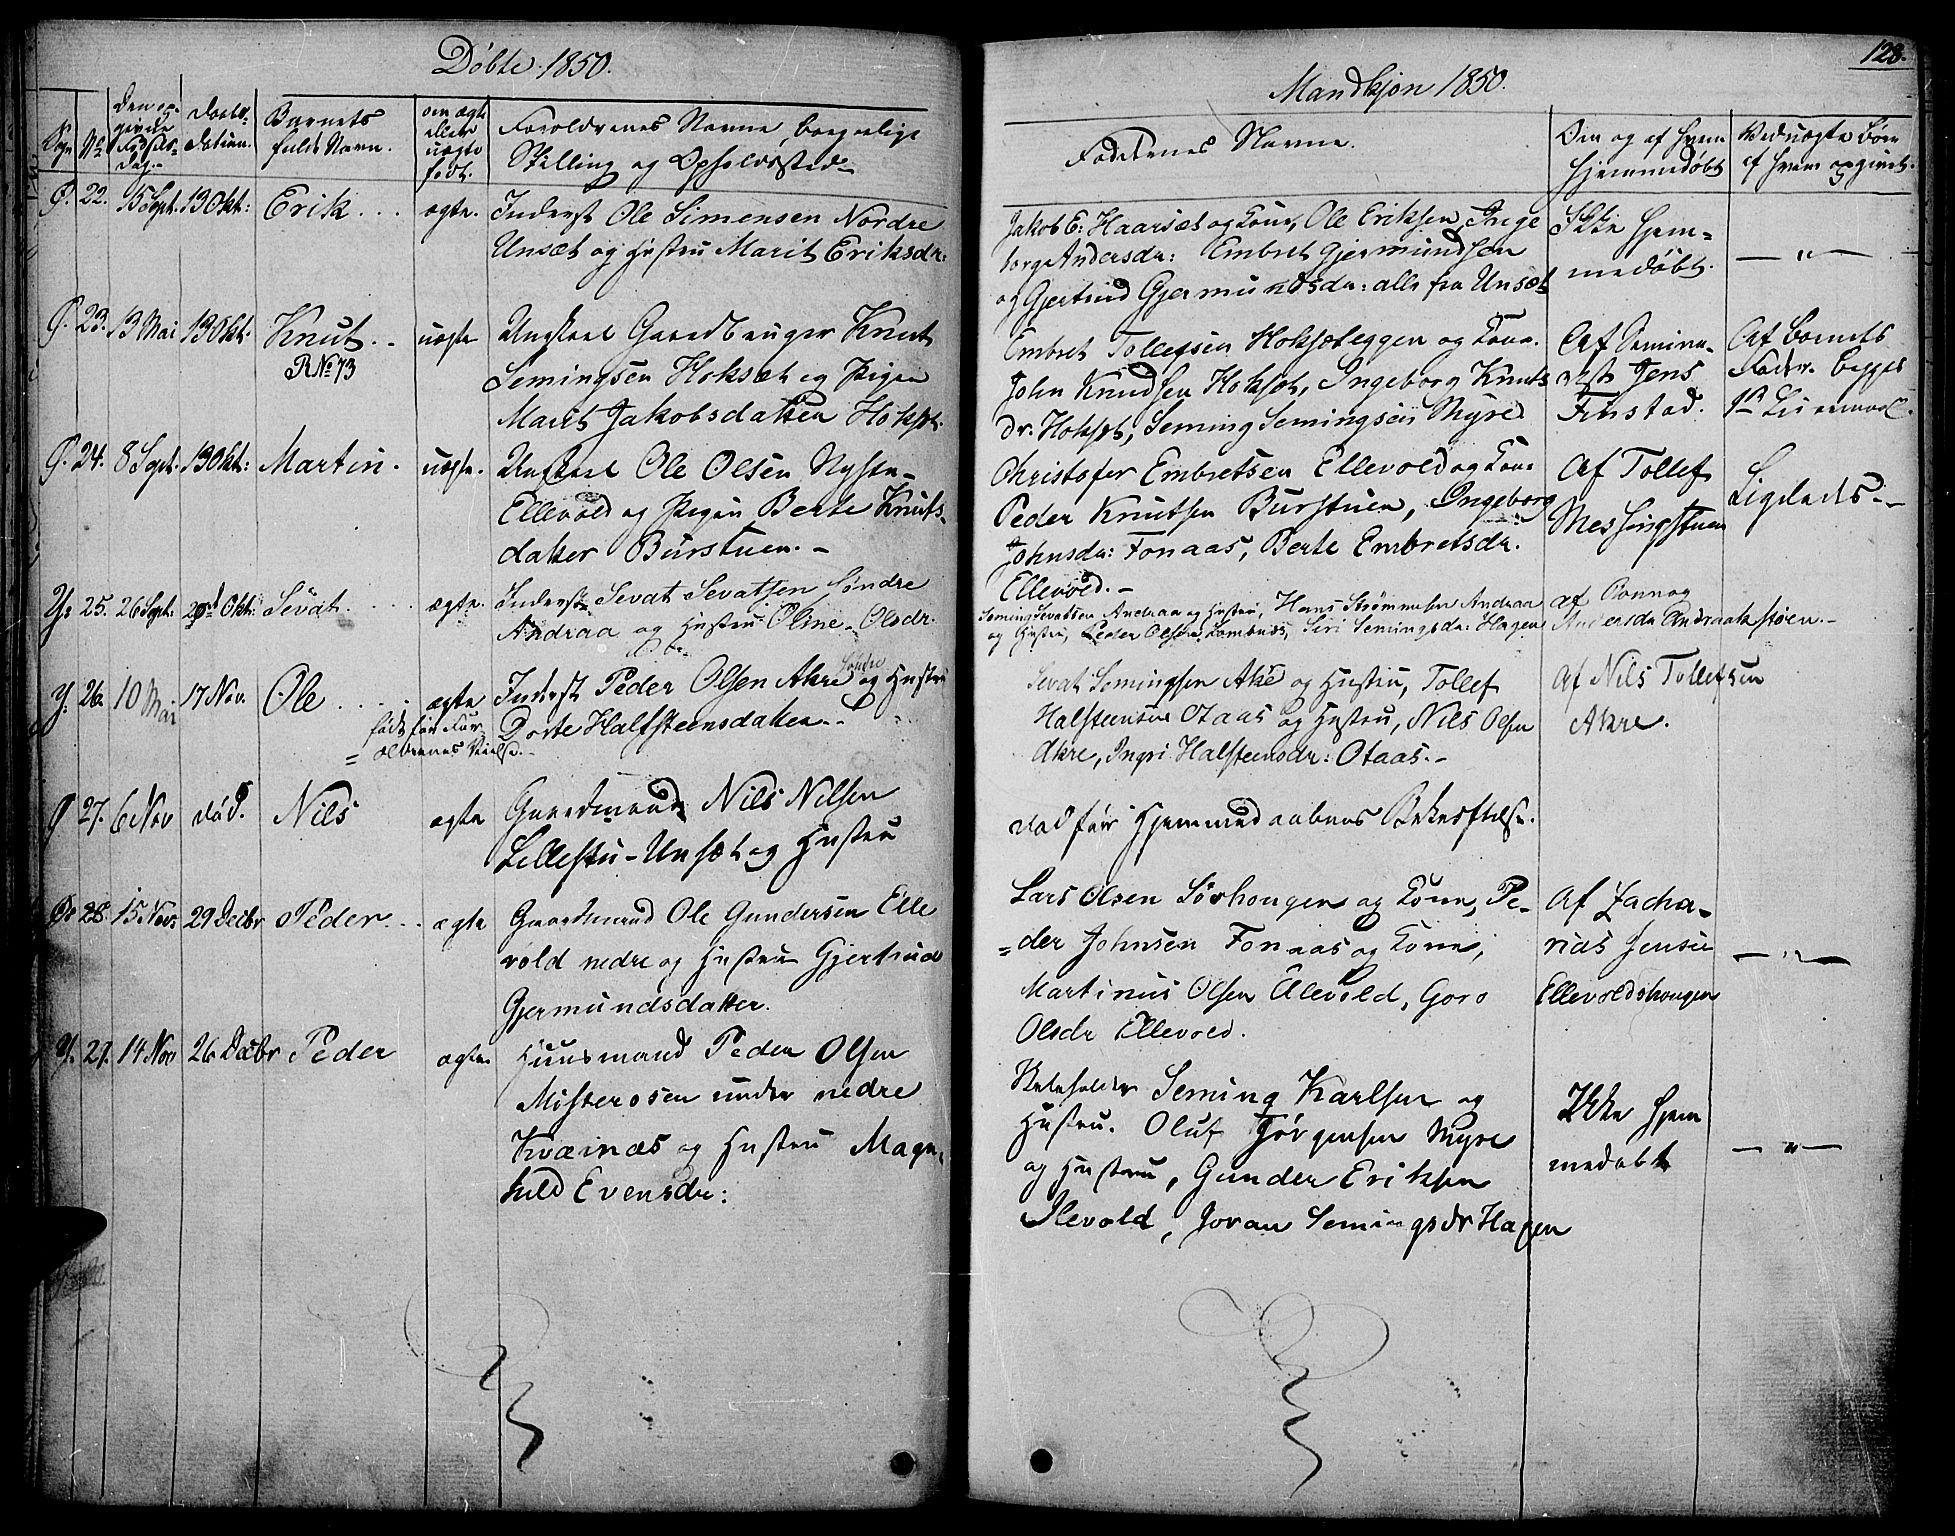 Døbte 1850.
Sogn
No
Den opgivne Fødselsdag.
Daabsdatum.
Barnets fulde Navn.
om ægte eller uægte født.
Forældrenes Navne, borgerlige
Stilling og Opholdssted
Ø. 22. 15 Sept. 13 Okt: Erik . . . ægte. Inderst Ole Simensen Nordre
Unsæt og Hustru Marit Eriksdr.
Ø. 23. 13 Mai 13 Okt. Knut . . uægte Ungkarl Gaardbruger Knut
R No 73
Semingsen Hoksæt og Pigen
Marit Jakobsdatter Hoksæt.
Ø. 24. 8 Sept. 13 Okt: Martin . uægte. Ungkarl Ole Olsen
Ellevold og Pigen Berte Knuts-
datter Burstuen. -
Y. 25. 26 Sept. Okt: Sevat . . . . ægte. Inderst Sevat Sevatsen Søndre
Andraa og Hustru Oline Olsdr.
Y. 26. 10 Mai 17 Nov. Ole . . . . ægte Inderst Peder Olsen Akre Søndre og Hustru
født før For-
ældrenes Vielse.
Dorte Halfsteensdatter. -
Ø 27. 6 Nov død. Nils ægte Gaardmand Nils Nilsen
Lillestu-Unsæt og Hustru
Ø 28. 15 Nov: 29 Decbr Peder . . . ægte Gaardmand Ole Gundersen Elle
vold nedre og Hustru Gjertrud
Gjermundsdatter.
Y. 29. 14 Nov 26 Decbr Peder ægte Huusmand Peder Olsen
Misterosen under nedre
Kværnæs og Hustru Magn-
hild Evensdr:
128.
Mandkjøn 1850.
Faddernes Navne.
Om og af hvem
hjemmedøbt
Ved uægte Børn
af hvem opgivet.
Jakob E: Haarsæt og Kone, Ole Eriksen, Inge
borg Andersdr: Embret Gjermundsen
og Gjertrud Gjermundsdr: alle fra Unsæt
Ikke hjem-
medøbt.
— " —
Embret Tollefsen Hoksæteggen og Kone.
John Knudsen Hoksæt, Ingeborg Knuts
dr. Hoksæt, Seming Semingsen Myre
Af Semina-
rist Jens
Finstad.
Af Barnets
Fader. Begges
1te Leiermaal.
Christofer Embretsen Ellevold og Kone
Peder Knutsen Burstuen, Ingeborg
Johnsdr: Fonaas, Berte Embretsdr.
Ellevold. -
Af Tollef
Messingstuen
Ligeleds. -
Seming Sevatsen Andraa og Hustru, Hans Strømmesen Andraa
og Hustru, Peder Olsen Lombnæs, Siri Semingsdr: Hagen
af Ronnog
Andersdr Andraakstøen. -
Sevat Semingsen Akre og Hustru, Tollef
Halsteensen Otaas og Hustru, Nils Olsen
Akre, Ingri Halsteensdr: Otaas. -
Af Nils Tollefsen
Akre.
død før Hjemmedaabens Bekræftelse.
Lars Olsen Sørhougen og Kone, Pe-
=der Johnsen Fonaas og Kone,
Martinus Olsen Ellevold, Goro
Olsdr Ellevold.
Af Zacha-
rias Jensen
Ellevoldshougen
— " —
Skoleholder Seming Karlsen og
Hustru. Oluf Jørgensen Myre
og Hustru, Gunder Eriksen
Ilevold, Joran Semingsdr Hagen
Ikke hjem
medøbt
— " —